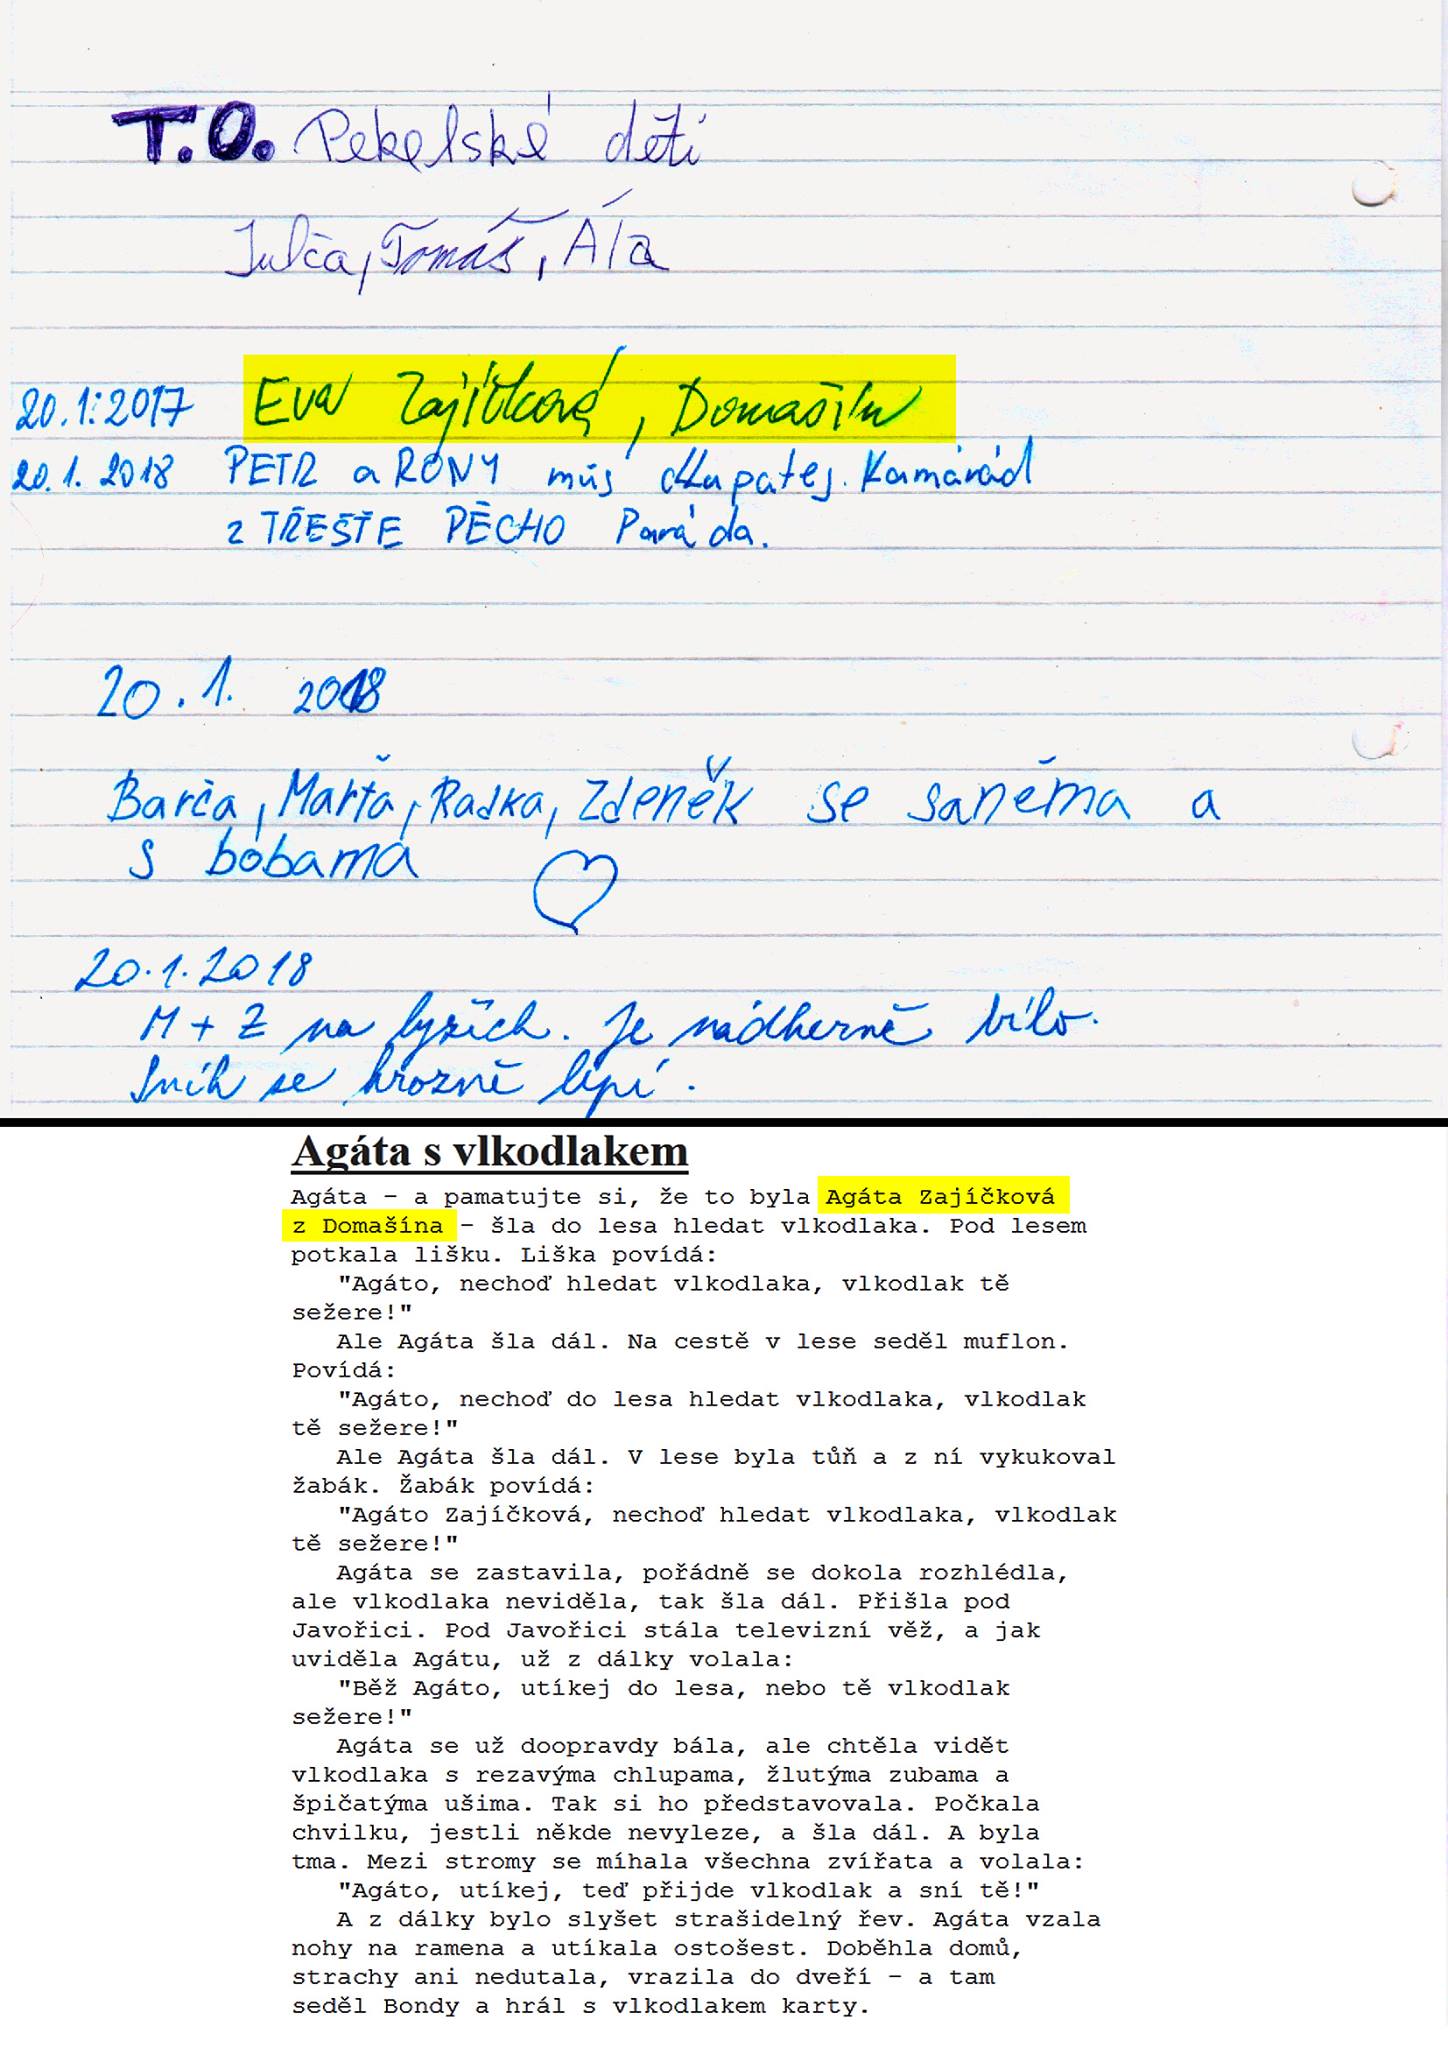 T.O. Pekelské děti
Julča, Tomáš, Ála
20.1.2017 Eva Zajíčková, Domašín
20.1.2018 PETR a RONY můj chlupatej. Kamarád
z TŘEŠTĚ PĚCHO Paráda.
20.1. 2018
Barča, Marťa, Radka, Zdeněk se saněma a
s bobama
20.1.2018
M + Z na lyžích. Je nádherně bílo.
Sníh se hrozně lepí.
Agáta s vlkodlakem
Agáta – a pamatujte si, že to byla Agáta Zajíčková
z Domašína – šla do lesa hledat vlkodlaka. Pod lesem
potkala lišku. Liška povídá:
"Agáto, nechoď hledat vlkodlaka, vlkodlak tě
sežere!"
Ale Agáta šla dál. Na cestě v lese seděl muflon.
Povídá:
"Agáto, nechoď do lesa hledat vlkodlaka, vlkodlak
tě sežere!"
Ale Agáta šla dál. V lese byla tůň a z ní vykukoval
žabák. Žabák povídá:
"Agáto Zajíčková, nechoď hledat vlkodlaka, vlkodlak
tě sežere!"
Agáta se zastavila, pořádně se dokola rozhlédla,
ale vlkodlaka neviděla, tak šla dál. Přišla pod
Javořici. Pod Javořici stála televizní věž, a jak
uviděla Agátu, už z dálky volala:
"Běž Agáto, utíkej do lesa, nebo tě vlkodlak
sežere!"
Agáta se už doopravdy bála, ale chtěla vidět
vlkodlaka s rezavýma chlupama, žlutýma zubama a
špičatýma ušima. Tak si ho představovala. Počkala
chvilku, jestli někde nevyleze, a šla dál. A byla
tma. Mezi stromy se míhala všechna zvířata a volala:
"Agáto, utíkej, teď přijde vlkodlak a sní tě!"
A z dálky bylo slyšet strašidelný řev. Agáta vzala
nohy na ramena a utíkala ostošest. Doběhla domů,
strachy ani nedutala, vrazila do dveří – a tam
seděl Bondy a hrál s vlkodlakem karty.